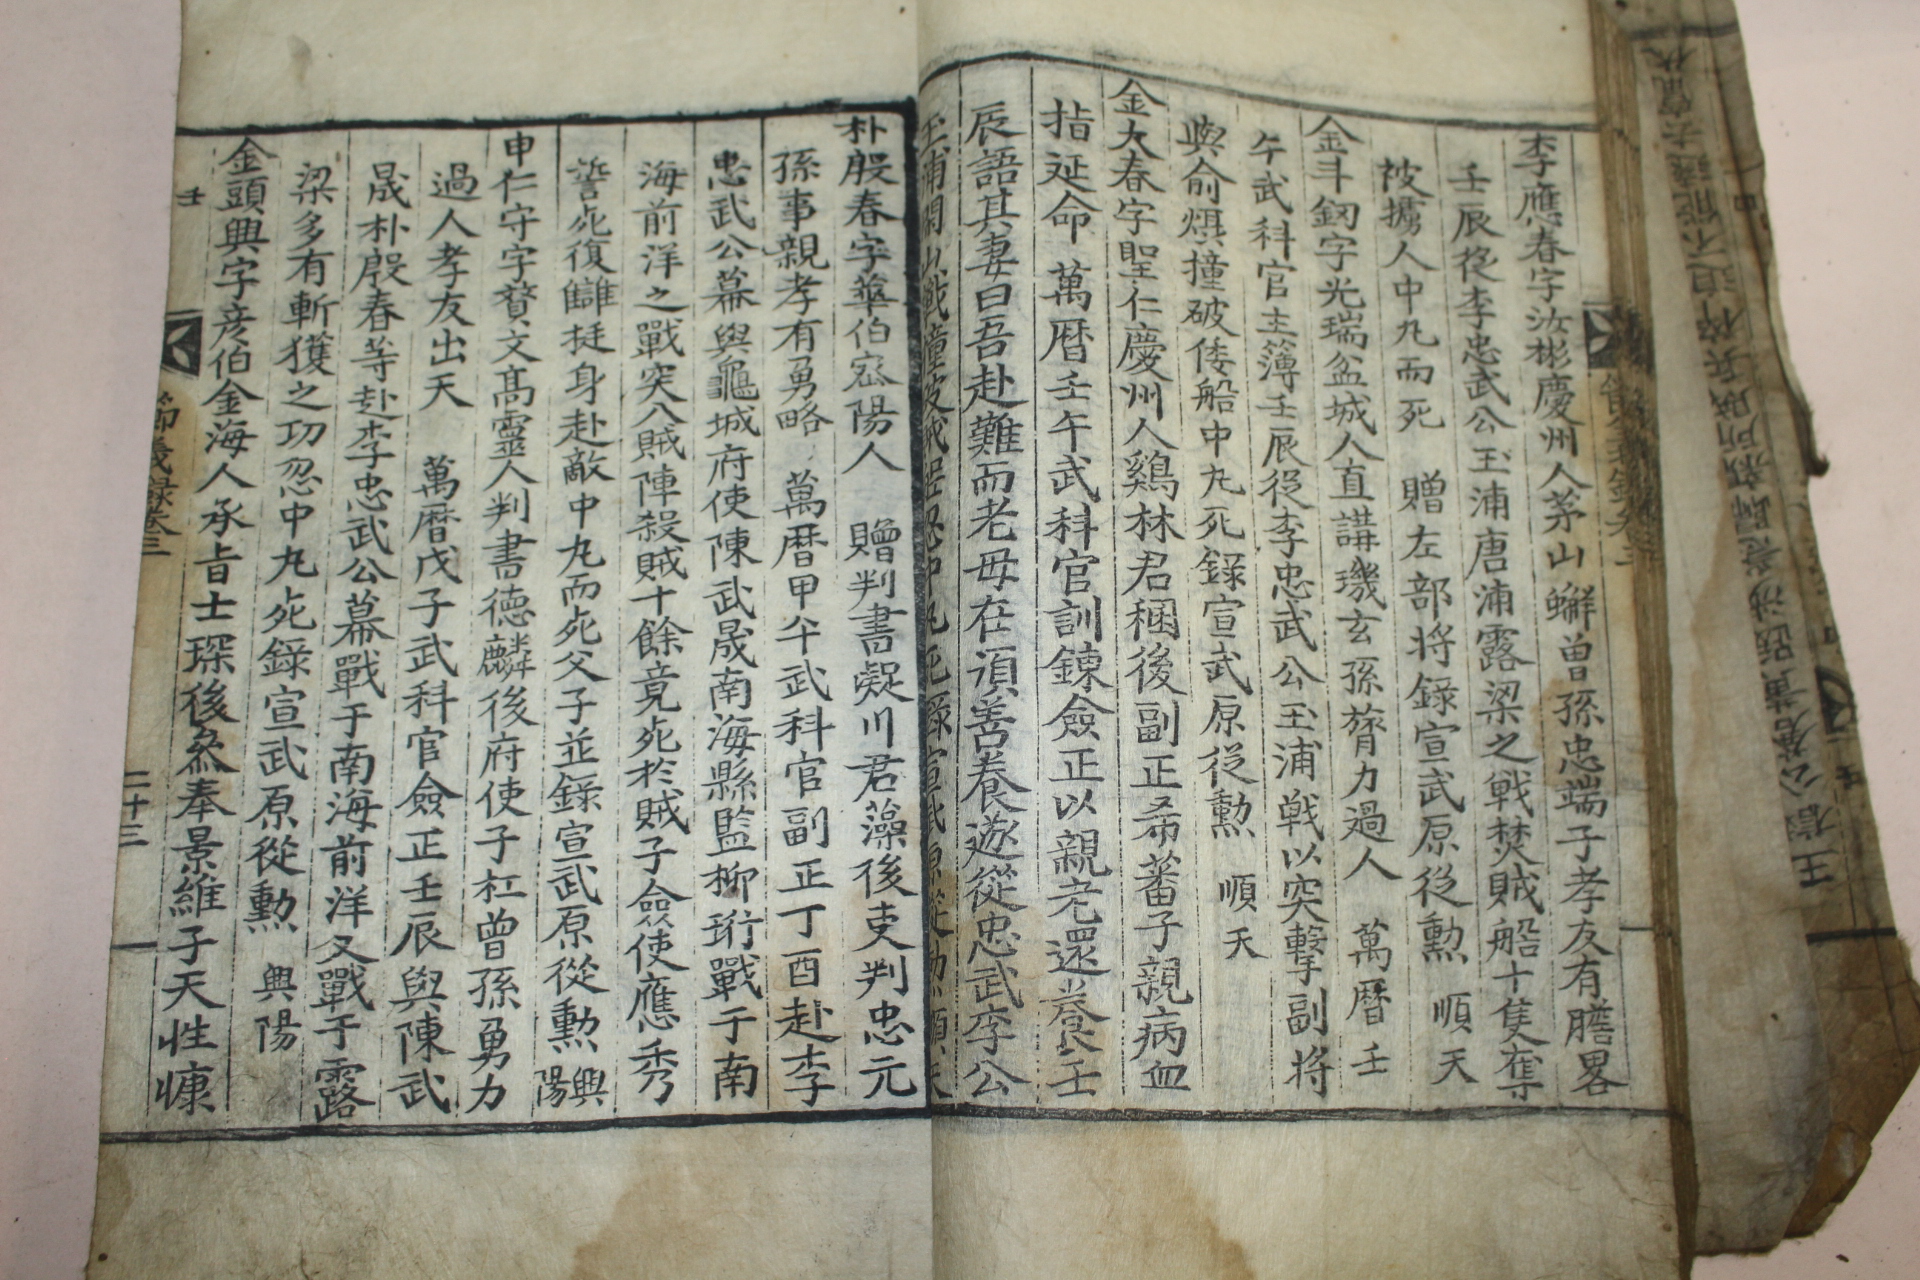 李應春字汝彬慶州人茅山蠏曽孫忠端子孝友有膽畧
壬辰從李忠武公玉浦唐浦露梁之戦焚賊船十隻奪
被擄人中丸而死 贈左部将錄宣武原從勲 順天
金斗釰字光瑞盆城人直講璣玄孫膂力過人 萬曆壬
午武科官主簿壬辰從李忠武公玉浦戦以突擊副将
與俞熉撞破倭船中丸死錄宣武原從勲 順天
金大春字聖仁慶州人鷄林君稛後副正希蕃子親病血
指延命 萬曆壬午武科官訓鍊僉正以親老還養壬
辰語其妻曰吾赴難而老母在湏善養遂從忠武李公
玉浦閑山戦撞破賊 忽中丸死錄宣武原從勲 順天
朴殷春字華伯宻陽人 贈判書凝川君藻後吏判忠元
孫事親孝有勇略 萬曆甲午武科官副正丁酉赴李
忠武公幕與龜城府使陳武晟南海縣監柳珩戰于南
海前洋之戰突入賊陣殺賊十餘竟死於賊子僉使應秀
誓死復讎挺身赴敵中丸而死父子並錄宣武原從勲 興陽
申仁守字賛文高靈人判書德麟後府使子杠曽孫勇力
過人孝友出天 萬曆戊子武科官僉正壬辰與陳武
晟朴殷春等赴李忠武公幕戰于南海前洋又戰于露
梁多有斬獲之功忽中丸死錄宣武原從勲 興陽
金頭興字彦伯金海人承旨士琛後叅奉景維子天性慷
節義錄卷三
二十三